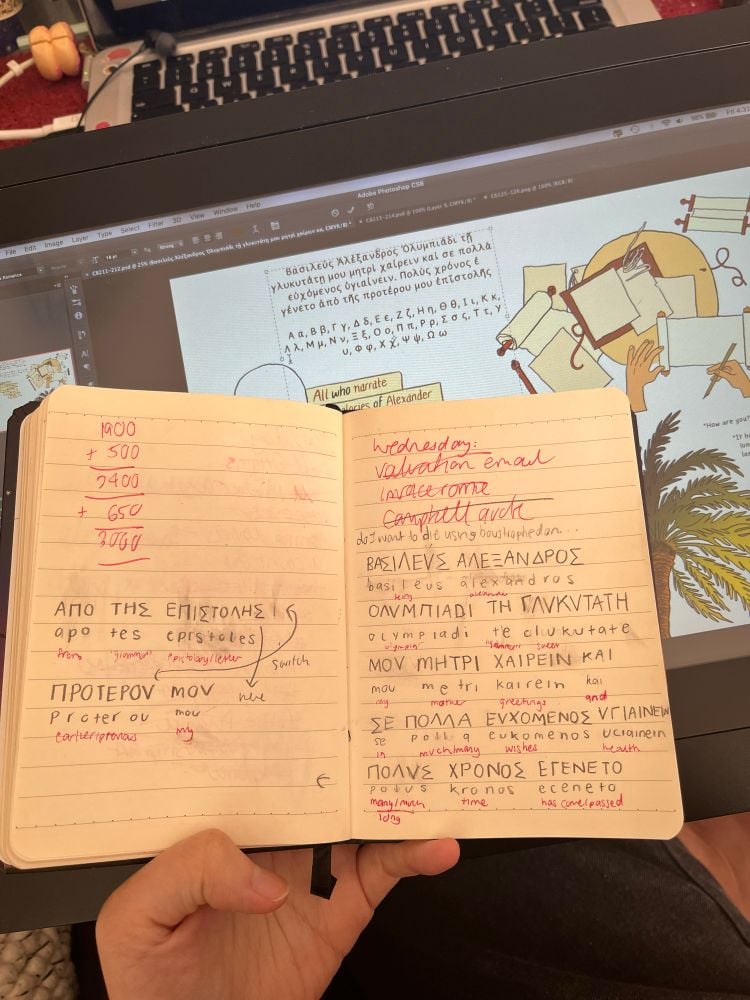 Adobe Photoshop CS6
File Edit Image Layer Type Select Filter 3D View Window Help
Βασιλεὺς Ἀλέξανδρος Ὀλυμπιάδι τῇ
γλυκυτάτῃ μου μητρὶ χαίρειν καὶ σε πολλὰ
εὐχόμενος ὑγιαίνειν. Πολὺς χρόνος ἐ
γένετο ἀπὸ τῆς προτέρου μου ἐπιστολῆς
Α α, Β β, Γ γ, Δ δ, Ε ε, Ζ ζ, Η η, Θ θ, Ι ι, Κ κ,
Λ λ, Μ μ, Ν ν, Ξ ξ, Ο ο, Π π, Ρ ρ, Σ σ ς, Τ τ, Υ
υ, Φ φ, Χ χ, Ψ ψ, Ω ω
All who narrate
glories of Alexander
"How are you?"
1900
+ 500
2400
+ 650
3060
ΑΠΟ ΤΗΣ ΕΠΙΣΤΟΛΗΣ
apo tes epistoles
from "grammar" epistolary/letter
switch
ΠΡΟΤΕΡΟΥ ΜΟΥ
Proterou mou
earlier/previous my
←
Wednesday:
Valuation email
Campbell
do I want to die using boustrophedon...
ΒΑΣΙΛΕΥΣ ΑΛΕΞΑΝΔΡΟΣ
basileus alexandros
king alexander
ΟΛΥΜΠΙΑDΙ ΤΗ ΓΛΥΚΥΤΑΤΗ
olympiadi te clukutate
"grammar" sweet
ΜΟΥ ΜΗΤΡΙ ΧΑΙΡΕΙΝ ΚΑΙ
mou metri kairein kai
my mother greetings and
ΣΕ ΠΟΛΛΑ ΕΥΧΟΜΕΝΟΣ ΥΓΙΑΙΝΕΙΝ
se polla eukomenos uciainein
in much/many wishes health
ΠΟΛΥΣ ΧΡΟΝΟΣ ΕΓΕΝΕΤΟ
polus kronos eceneto
many/much time has come/passed
long